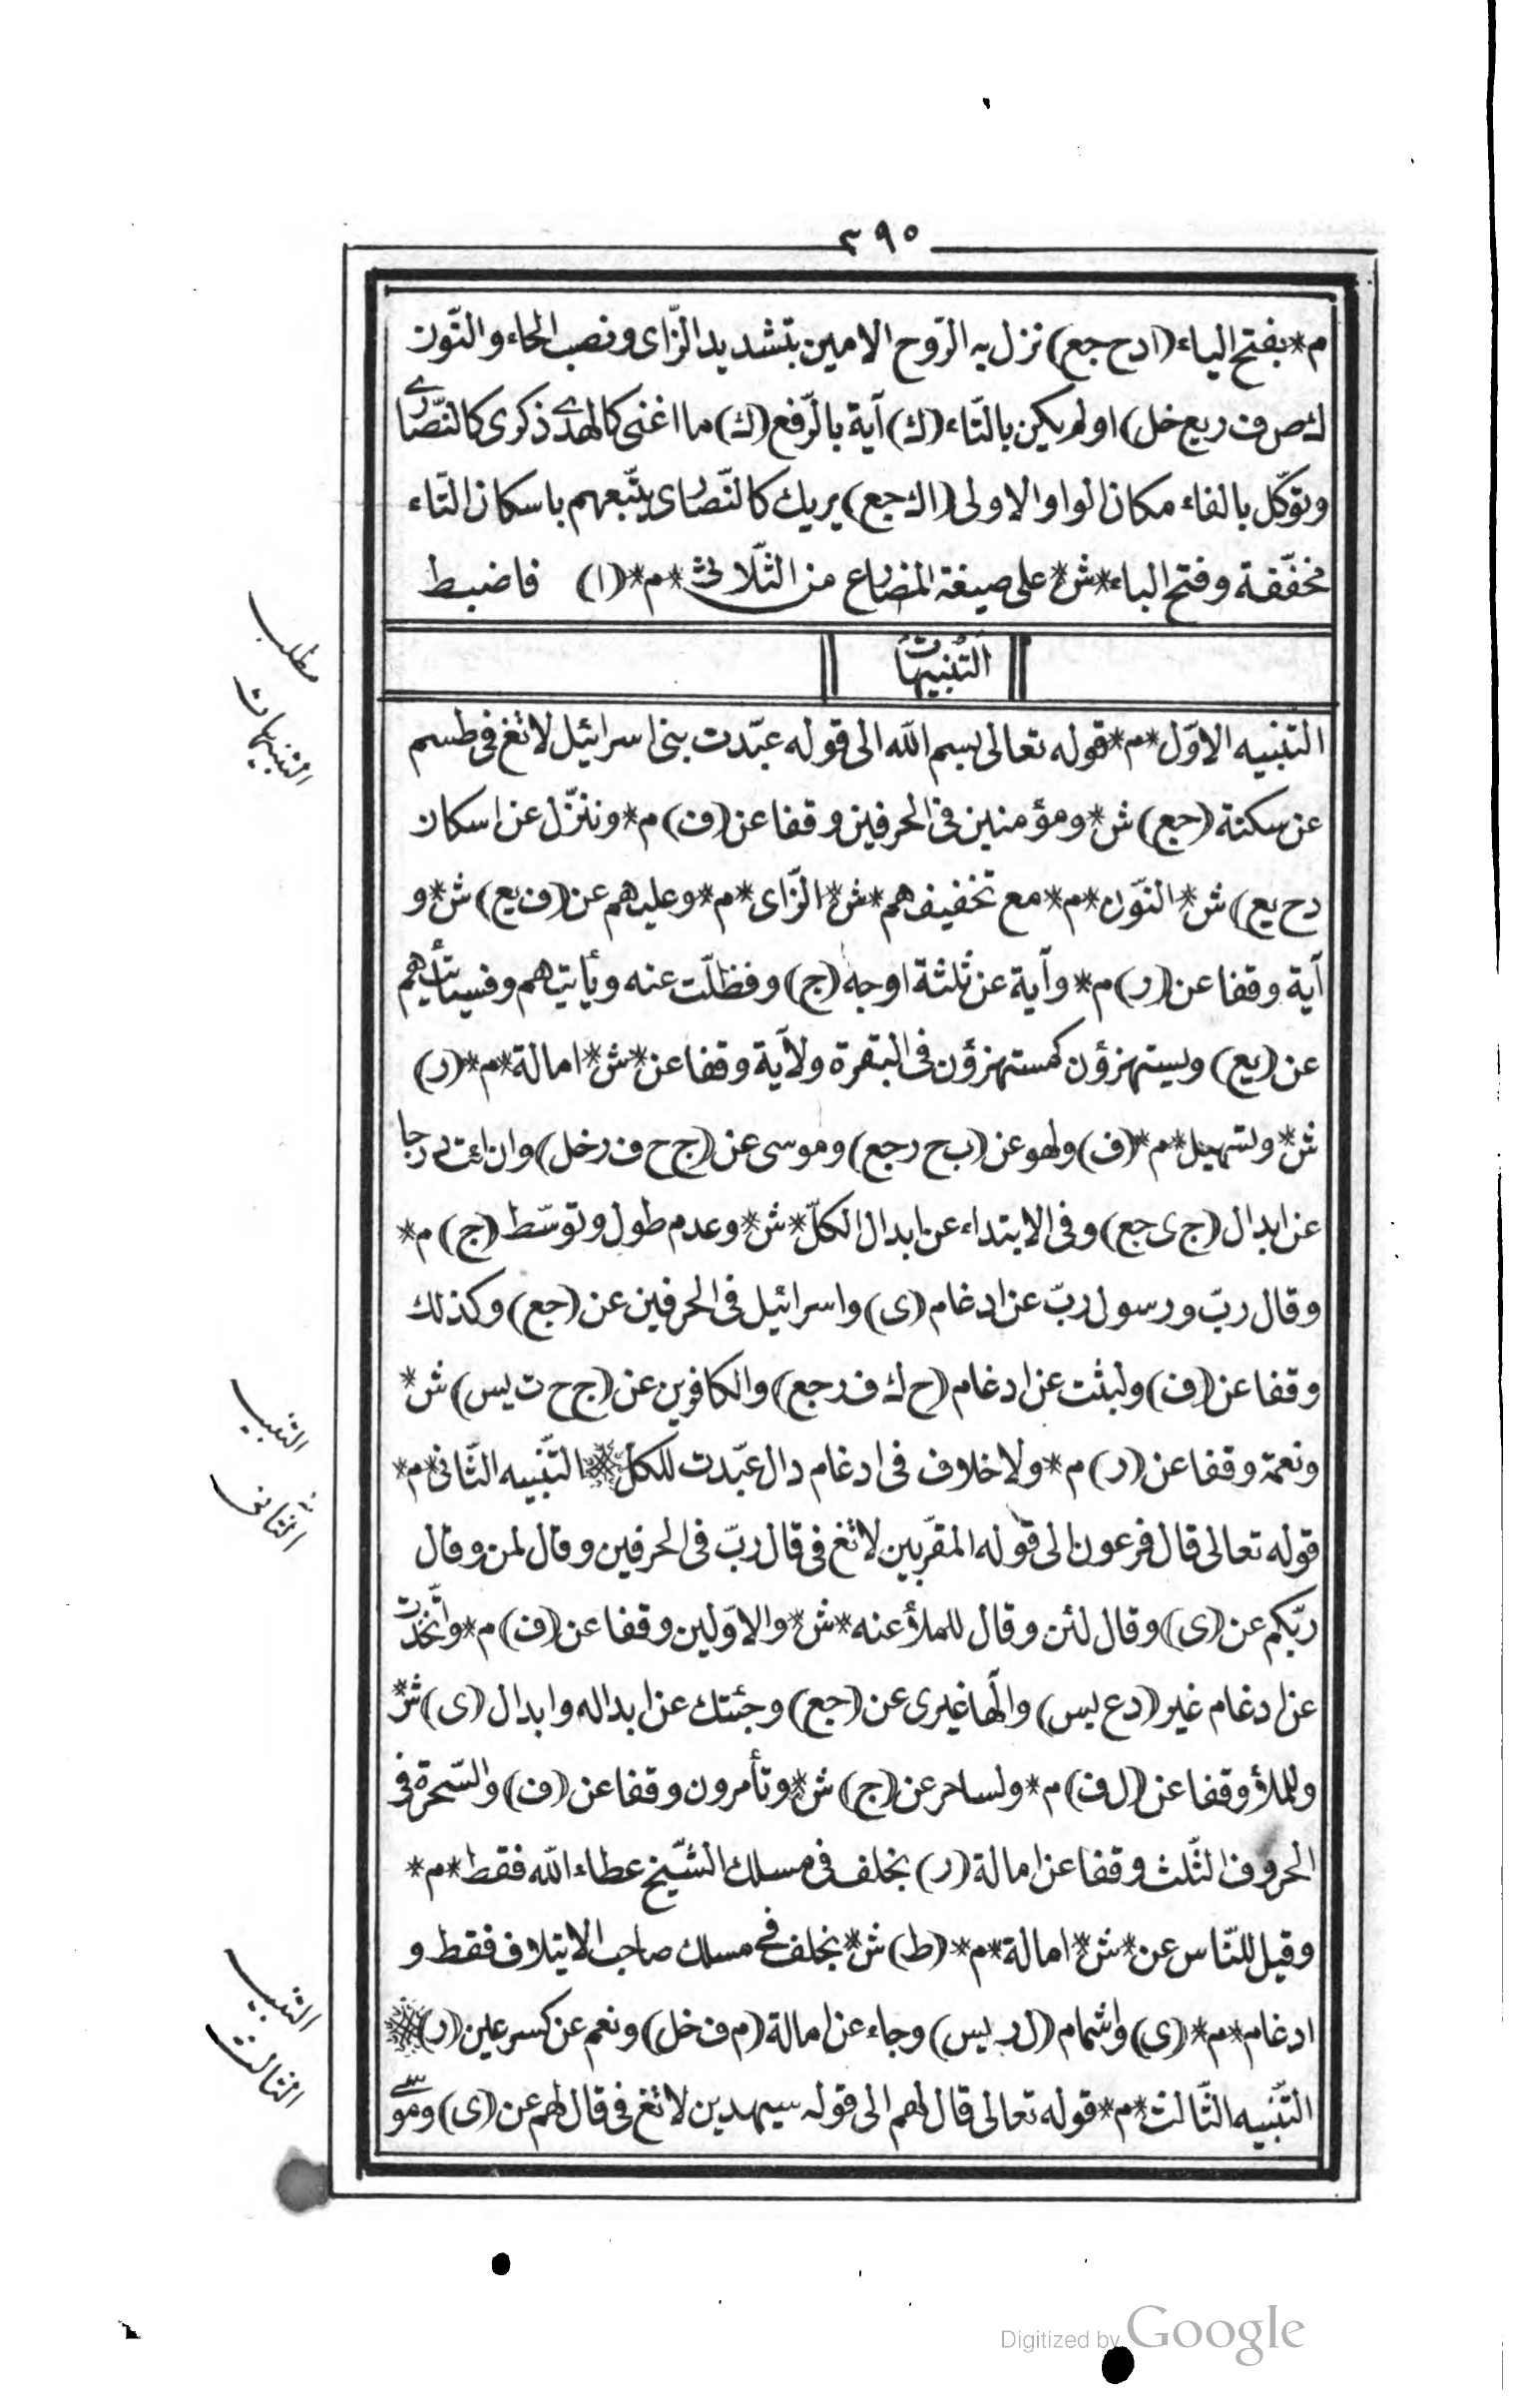 ٣٩٥
م* بفتح الياء (ادح جع) نزل به الرّوح الامين بتشديد الزّاى ونصب الحاء والنّون
(ك ص ف ر يع خل) اولم يكن بالتّاء (ك) آية بالرّفع (ك) ما اغنى كالهدى ذكرى كالنّصارى
وتوكّل بالفاء مكان الواو الاولى (اك جع) يريك كالنّصارى يتّبعهم باسكان التّاء
مخفّفة وفتح الباء *ش* على صيغة المضارع من الثّلاثى *م* (ا) فاضبط
التّنبيهات
مطلب التنبيهات
التّنبيه الاوّل *م* قوله تعالى بسم اللّه الى قوله عبّدت بنى اسرائيل لا تغ فى طسم
عن سكتة (جع) ش* ومؤمنين فى الحرفين وقفا عن (ف) م* وننزّل عن اسكان
(دح يع) ش* النّون *م* مع تخفيفهم *ش* الزّاى *م* وعليهم عن (ف يع) ش* و
آية وقفا عن (ر) م* وآية عن ثلثة اوجه (ج) وفظلّت عنه ويأتيهم وفسيأتيهم
عن (يع) ويستهزؤن كمستهزؤن فى البقرة ولآية وقفا عن *ش* امالة *م* (ر)
ش* وتسهيل *م* (ف) ولهو عن (ب ح ر جع) وموسى عن (ج ح ف ر خل) وان ائت درجا
عن ابدال (ج ى جع) وفى الابتداء عن ابدال الكلّ *ش* وعدم طول وتوسّط (ج) م*
وقال ربّ ورسول ربّ عن ادغام (ى) واسرائيل فى الحرفين عن (جع) وكذلك
وقفا عن (ف) ولبثت عن ادغام (ح ك ف ر جع) والكافرين عن (ج ح ت يس) ش*
ونعمة وقفا عن (ر) م* ولا خلاف فى ادغام دال عبّدت للكلّ * التّنبيه الثّانى *م*
التنبيه الثّانى
قوله تعالى قال فرعون الى قوله المقرّبين لا تغ فى قال ربّ فى الحرفين وقال لمن وقال
ربّكم عن (ى) وقال لئن وقال للملأ عنه *ش* والاوّلين وقفا عن (ف) م* واتّخذت
عن ادغام غير (دع يس) والها غيرى عن (جع) وجئتك عن ابداله وابدال (ى) ش*
وللملأ وقفا عن (ل ف) م* ولساحر عن (ج) ش* وتأمرون وقفا عن (ف) والسّحرة فى
الحروف الثّلث وقفا عن امالة (ر) بخلف فى مسلك الشّيخ عطاء اللّه فقط *م*
وقيل للنّاس عن *ش* امالة *م* (ط) ش* بخلف فى مسلك صاحب الايتلاف فقط و
ادغام *م* (ى) واشمام (ل ر يس) وجاء عن امالة (م ف خل) ونعم عن كسر عين (ر) *
التّنبيه الثّالث *م* قوله تعالى قال لهم الى قوله سيهدين لا تغ فى قال لهم عن (ى) وموسى
التنبيه الثالث
Digitized by Google